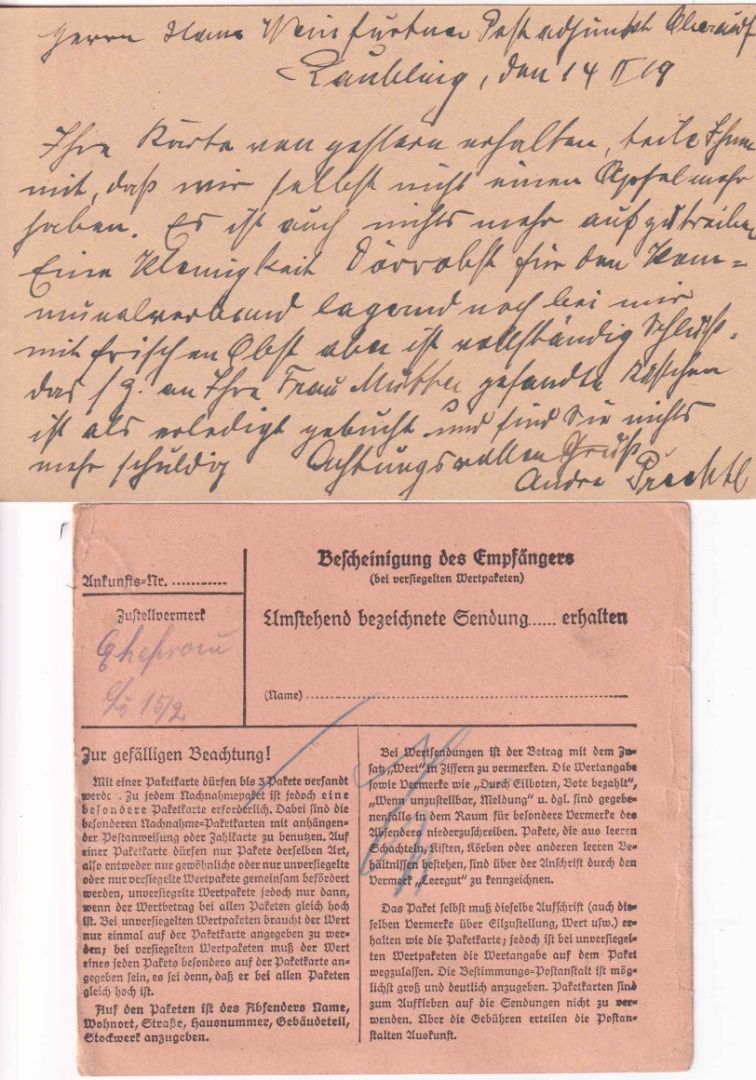 Herrn Hans Weinfurtner Postadjunkt
Raubling, den 14 II 19
Ihre Karte von gestern erhalten, teile Ihnen
mit, daß wir selbst nicht einen Apfel mehr
haben. Es ist auch nichts mehr aufzutreiben
Eine Kleinigkeit Dörrobst für den Kom=
munalverband lagernd noch bei mir
mit frischen Obst aber ist vollständig Schluß.
das an Ihre Frau Mutter gesandte Kistchen
ist als erledigt gebucht und sind Sie nichts
mehr schuldig Achtungsvollen Gruß
Andre Prechtl
Ankunfts-Nr. ............
Zustellvermerk
Ehefrau
15/2.
Bescheinigung des Empfängers
(bei versiegelten Wertpaketen)
Umstehend bezeichnete Sendung..... erhalten
(Name) ............
Zur gefälligen Beachtung!
Mit einer Paketkarte dürfen bis 3 Pakete versandt
werde . Zu jedem Nachnahmepaket ist jedoch eine
besondere Paketkarte erforderlich. Dabei sind die
besonderen Nachnahme-Paketkarten mit anhängen-
der Postanweisung oder Zahlkarte zu benutzen. Auf
einer Paketkarte dürfen nur Pakete derselben Art,
also entweder nur gewöhnliche oder nur unversiegelte
oder nur versiegelte Wertpakete gemeinsam befördert
werden, unversiegelte Wertpakete jedoch nur dann,
wenn der Wertbetrag bei allen Paketen gleich hoch
ist. Bei unversiegelten Wertpaketen braucht der Wert
nur einmal auf der Paketkarte angegeben zu wer-
den; bei versiegelten Wertpaketen muß der Wert
eines jeden Pakets besonders auf der Paketkarte an-
gegeben sein, es sei denn, daß er bei allen Paketen
gleich hoch ist.
Auf den Paketen ist des Absenders Name,
Wohnort, Straße, Hausnummer, Gebäudeteil,
Stockwerk anzugeben.
Bei Wertsendungen ist der Betrag mit dem Zu-
satz „Wert“ in Ziffern zu vermerken. Die Wertangabe
sowie Vermerke wie „Durch Eilboten, Bote bezahlt“,
„Wenn unzustellbar, Meldung“ u. dgl. sind gegebe-
nenfalls in dem Raum für besondere Vermerke des
Absenders niederzuschreiben. Pakete, die aus leeren
Schachteln, Kisten, Körben oder anderen leeren Be-
hältnissen bestehen, sind über der Anschrift durch den
Vermerk „Leergut“ zu kennzeichnen.
Das Paket selbst muß dieselbe Aufschrift (auch die-
selben Vermerke über Eilzustellung, Wert usw.) er-
halten wie die Paketkarte; jedoch ist bei unversiegel-
ten Wertpaketen die Wertangabe auf dem Paket
wegzulassen. Die Bestimmungs-Postanstalt ist mög-
lichst groß und deutlich anzugeben. Paketkarten sind
zum Aufkleben auf die Sendungen nicht zu ver-
wenden. Über die Gebühren erteilen die Postan-
stalten Auskunft.